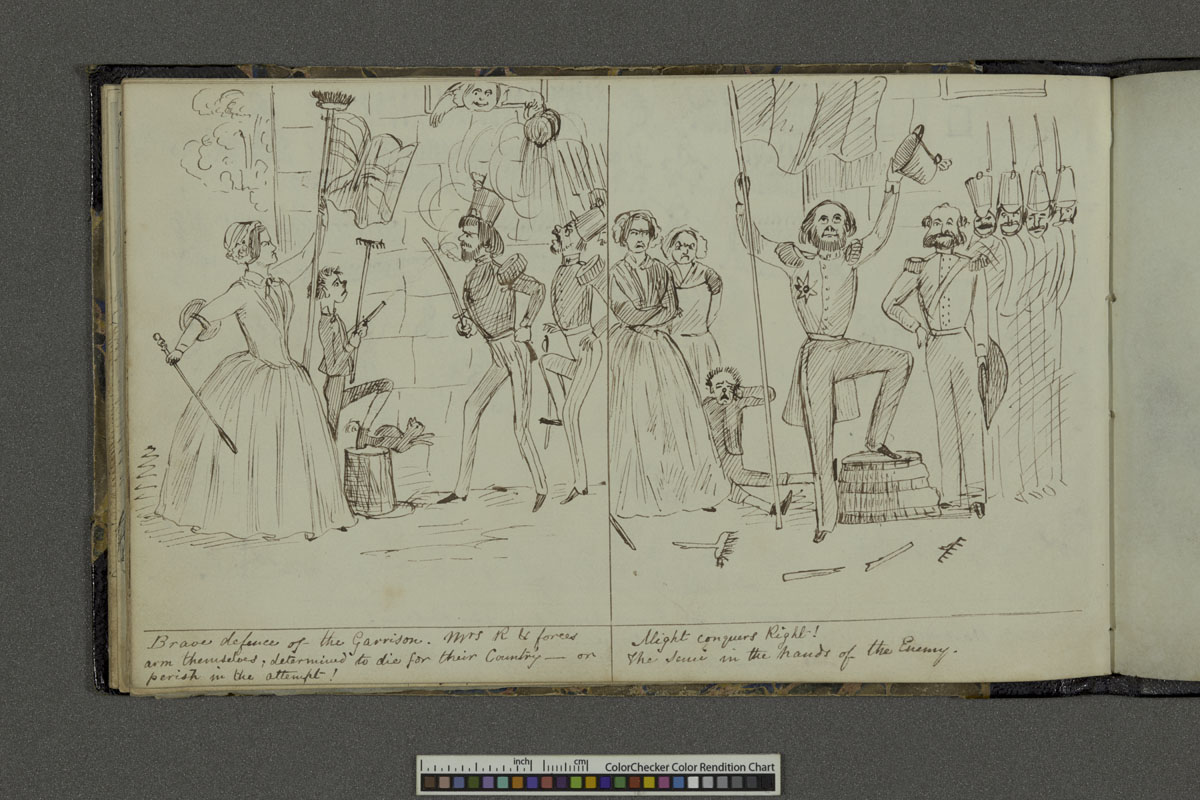 Brave defence of the Garrison. Mrs R & forces
arm themselves, determined to die for their Country — or
perish in the attempt!
Might conquers Right!
The in the hands of the Enemy.
inch
cm
ColorChecker Color Rendition Chart